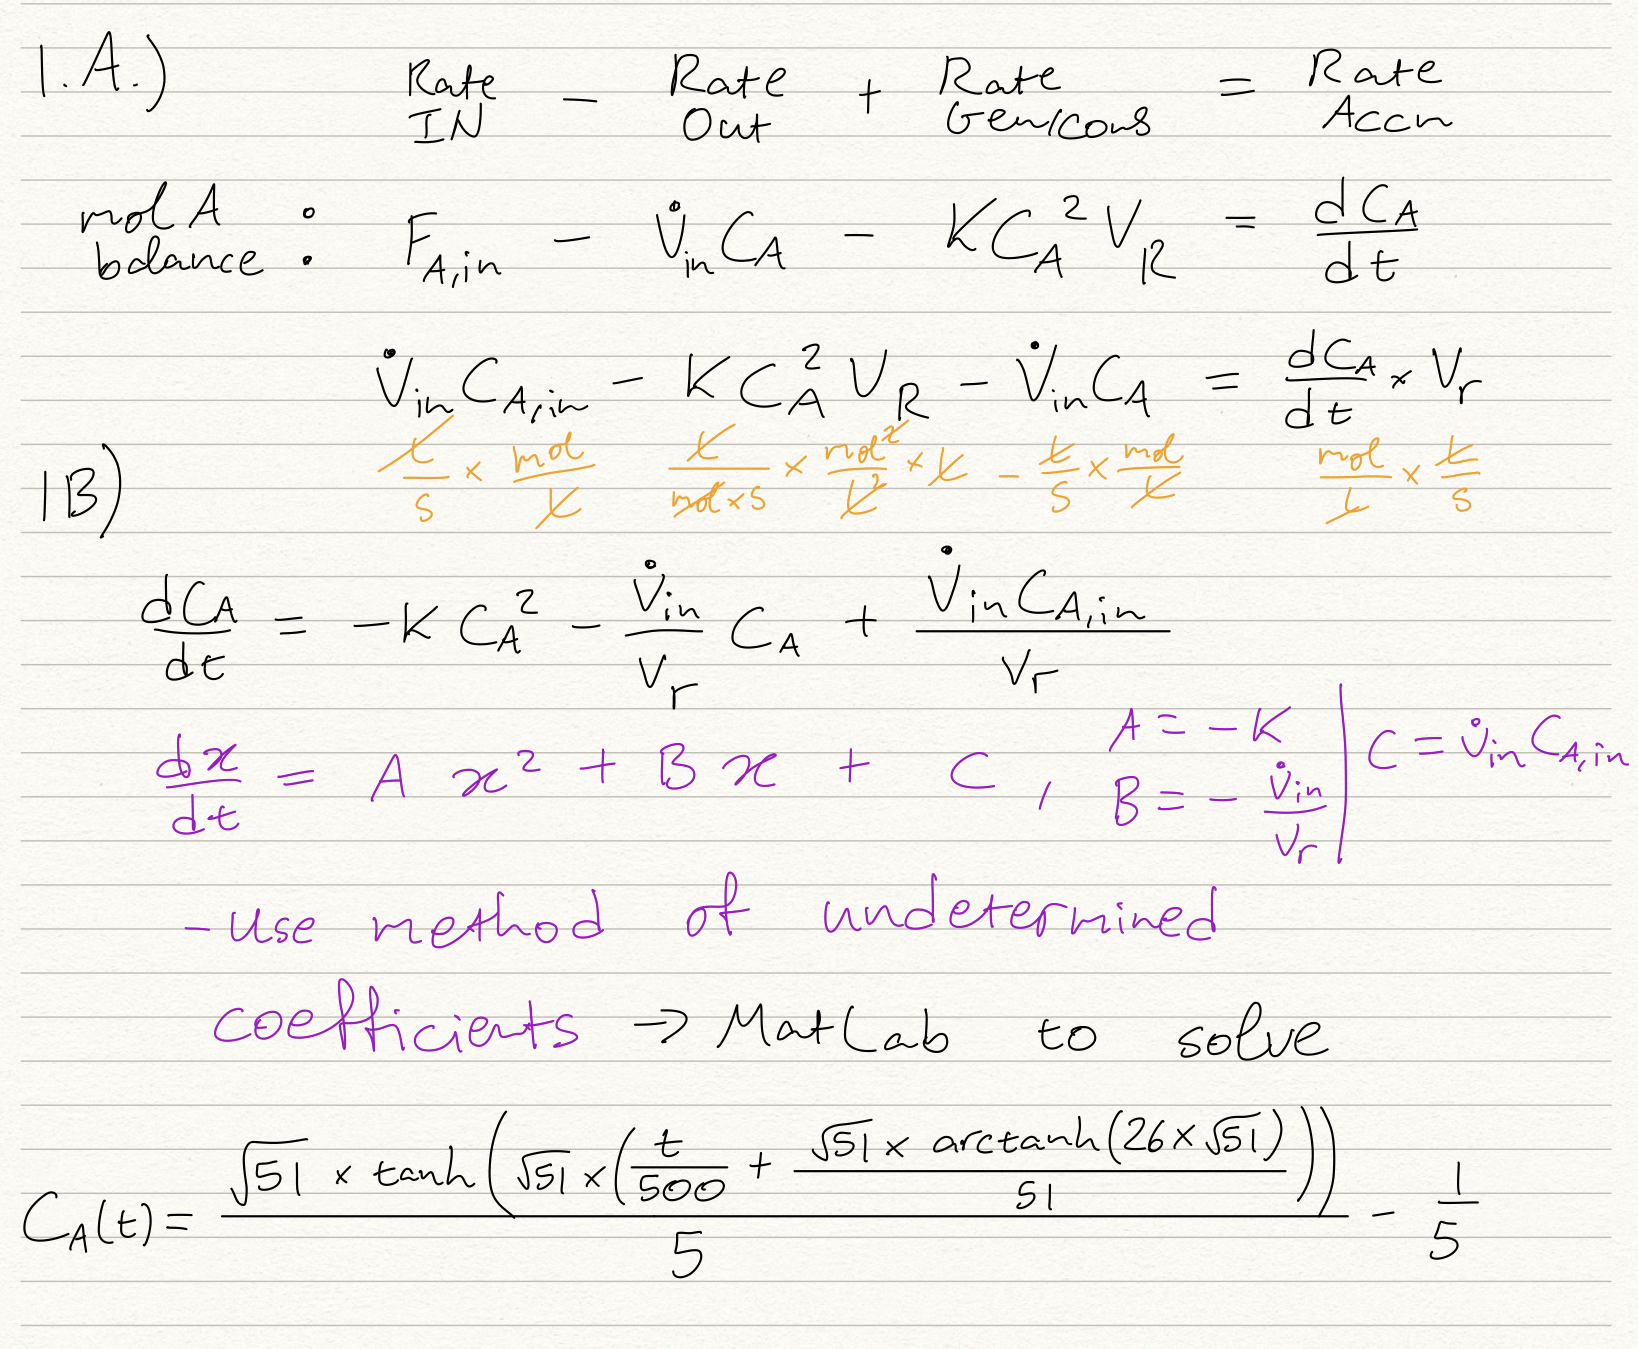 1.A.) Rate IN − Rate Out + Rate Gen/cons = Rate Accn
mol A balance : F_A,in − V̇_in C_A − K C_A² V_R = dC_A/dt
V̇_in C_A,in − K C_A² V_R − V̇_in C_A = dC_A/dt × V_r
L/s × mol/L L/(mol×s) × mol²/L² × L − L/s × mol/L mol/L × L/s
1B)
dC_A/dt = −K C_A² − V̇_in/V_r C_A + V̇_in C_A,in/V_r
dx/dt = A x² + B x + C , A = −K B = −V̇_in/V_r | C = V̇_in C_A,in
- use method of undetermined
coefficients → MatLab to solve
C_A(t) = (√51 × tanh(√51 × (t/500 + (√51 × arctanh(26 × √51))/51)))/5 − 1/5